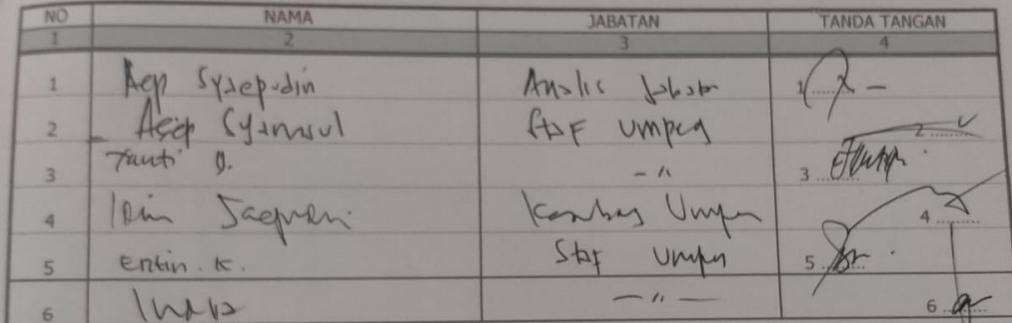 NO NAMA JABATAN TANDA TANGAN
1 2 3 4
1 Aep Syaepudin Analis Jabatan 1.......
2 Asep Syamsul Staf Umpeg 2.......
3 Tanti D. -"- 3.......
4 Iim Saepuri Kasubag Umpeg 4.......
5 Entin. K. Staf Umpeg 5.......
6 -"- 6.......